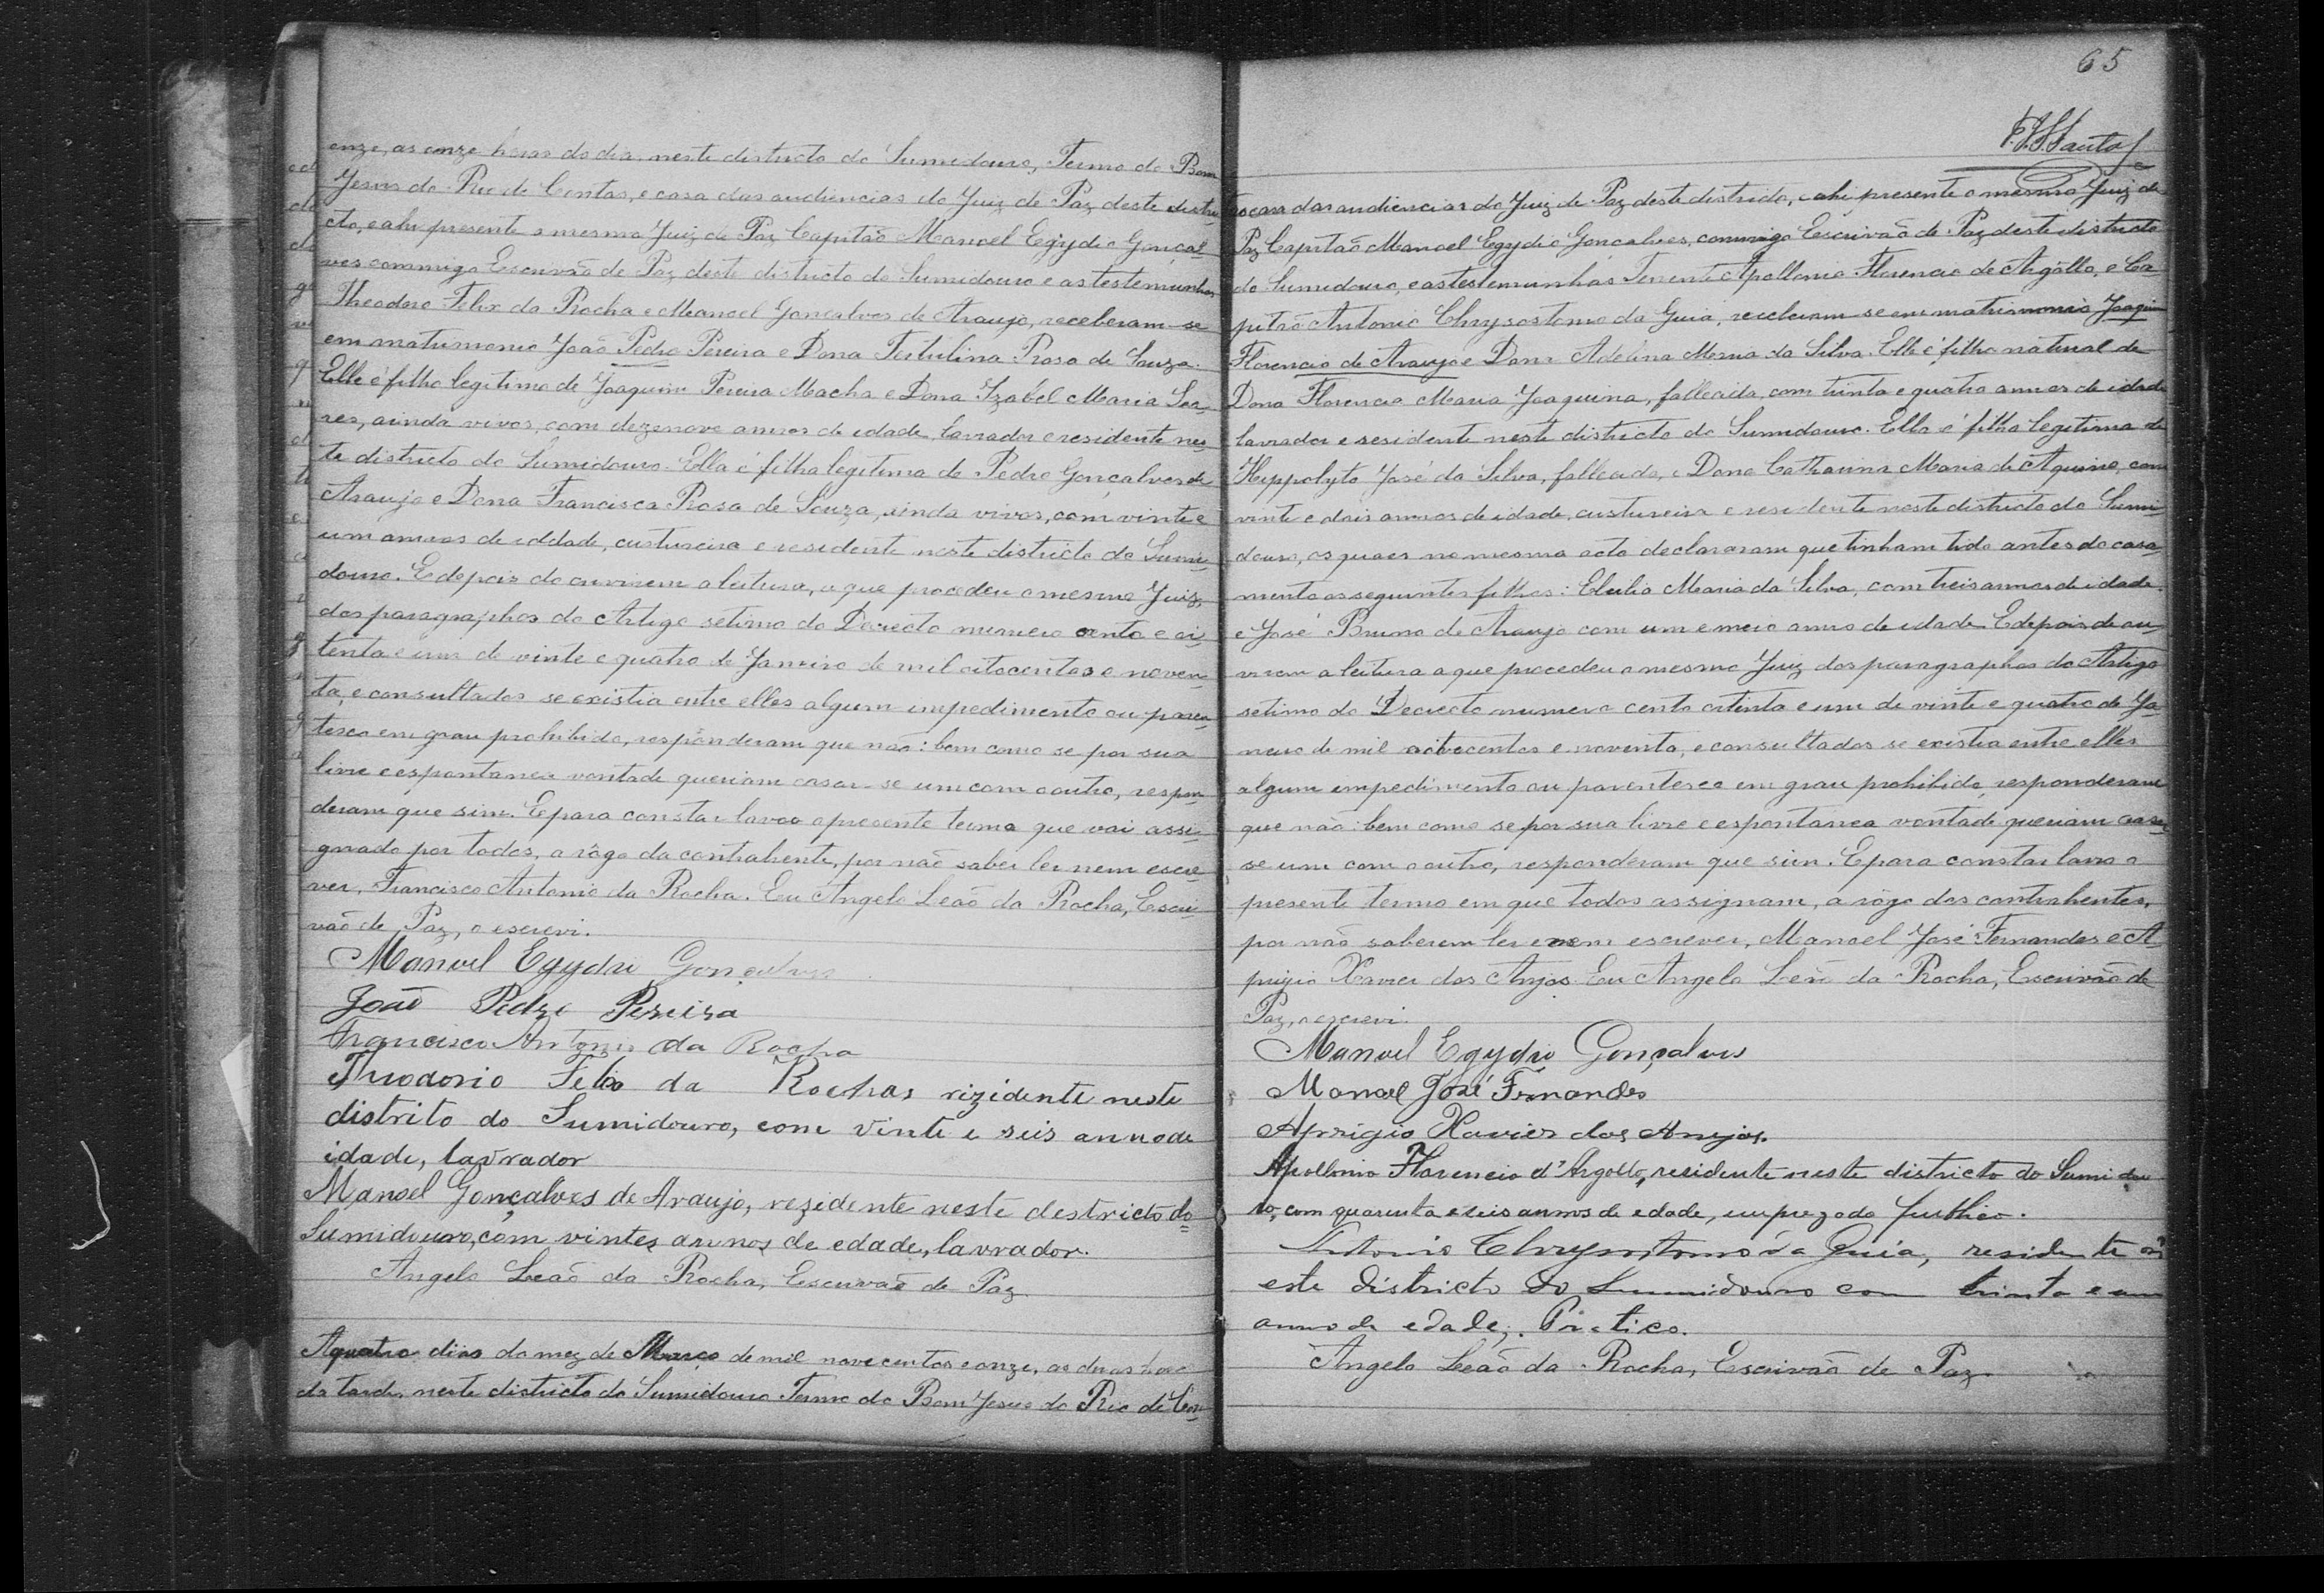 onze, as onze horas do dia, neste districto do Sumidouro, Termo do Bom
Jesus do Rio de Contas, e casa das audiencias do Juiz de Paz deste distri-
cto, e ahi presente o mesmo Juiz de Paz Capitão Manoel Egydio Gonçal-
ves commigo Escrivão de Paz deste districto do Sumidouro e as testemunhas
Theodoro Felix da Rocha e Manoel Gonçalves de Araujo, receberam-se
em matrimonio João Pedro Pereira e Dona Tertulina Rosa de Souza.
Elle é filho legitimo de Joaquim Pereira Macha e Dona Izabel Maria Soa-
res, ainda vivos, com dezenove annos de edade, lavrador e residente nes-
te districto do Sumidouro. Ella é filha legitima de Pedro Gonçalves de
Araujo e Dona Francisca Rosa de Souza, ainda vivos, com vinte e
um annos de eddade, custureira e residente neste districto do Sumi-
douro. E depois de ouvirem a leitura, a que procedeu o mesmo Juiz,
dos paragraphos do Artigo setimo do Decreto numero cento e oi-
tenta e um de vinte e quatro de Janeiro de mil oitocentos e noven-
ta, e consultados se existia entre elles algum impedimento ou paren-
tesco em grau prohibido, responderam que não: bem como se por sua
livre e espontanea vontade queriam casar-se um com o outro, respon-
deram que sim. E para constar lavro o presente termo que vai assi-
gnado por todos, a rôgo da contrahente, por não saber ler nem escre-
ver, Francisco Antonio da Rocha. Eu Angelo Leão da Rocha, Escri-
vão de Paz, o escrevi.
Manoel Egydio Gonçalves
João Pedro Pereira
Francisco Antonio da Rocha
Theodorio Felix da Rochas rizidente neste
distrito do Sumidouro, com vinte e seis anno de
idade, lavrador
Manoel Gonçalves de Araujo, rezidente neste destricto do
Sumidouro, com vintes annos de edade, lavrador.
Angelo Leão da Rocha, Escrivão de Paz
A quatro dias do mez de Março de mil novecentos e onze, as duas horas
da tarde, neste districto do Sumidouro Termo do Bom Jesus do Rio de Con-
65
Santos
tas e casa das audiencias do Juiz de Paz deste districto, e ahi presente o mesmo Juiz de
Paz Capitão Manoel Egydio Gonçalves, commigo Escrivão de Paz deste districto
do Sumidouro, e as testemunhas Tenente Apollonio Florencio de Argôllo, e Ca-
pitão Antonio Chrysostomo da Guia, receberam-se em matrimonio Joaquim
Florencio de Araujo e Dona Adelina Maria da Silva. Elle é filho natural de
Dona Florencia Maria Joaquina, fallecida, com trinta e quatro annos de idade
lavrador e residente neste districto do Sumidouro. Ella é filha legitima de
Hippolyto José da Silva, fallecido, e Dona Catharina Maria de Aquino, com
vinte e dois annos de idade, custureira e residente neste districto do Sumi-
douro, os quaes no mesmo acto declararam que tinham tido antes do casa-
mento os seguintes filhos: Elulia Maria da Silva, com treis annos de idade.
e José Bruno de Araujo com um e meio anno de idade E depois de ou-
virem a leitura a que procedeu o mesmo Juiz dos paragraphos do Artigo
setimo do Decreto numero cento oitenta e um de vinte e quatro de Ja-
neiro de mil oitocentos e noventa, e consultados se existia entre elles
algum impedimento ou parentesco em grau prohibido, responderam
que não: bem como se por sua livre e espontanea vontade queriam casar-
se um com o outro, responderam que sim. E para constar lavro o
presente termo em que todos assignam, a rôgo dos contrahentes,
por não saberem ler e nem escrever, Manoel José Fernandes e A-
prigio Xavier dos Anjos. Eu Angelo Leão da Rocha, Escrivão de
Paz, o escrevi.
Manoel Egydio Gonçalves
Manoel José Fernandes
Aprigio Xavier dos Anjos.
Apollonio Florencio d'Argollo, residente neste districto do Sumidou
ro, com quarenta e seis annos de edade, empregado publico.
Antonio Chrysostomo da Guia, residente n
este districto do Sumidouro com trinta e um
anno de edade,. Pratico.
Angelo Leão da Rocha, Escrivão de Paz.